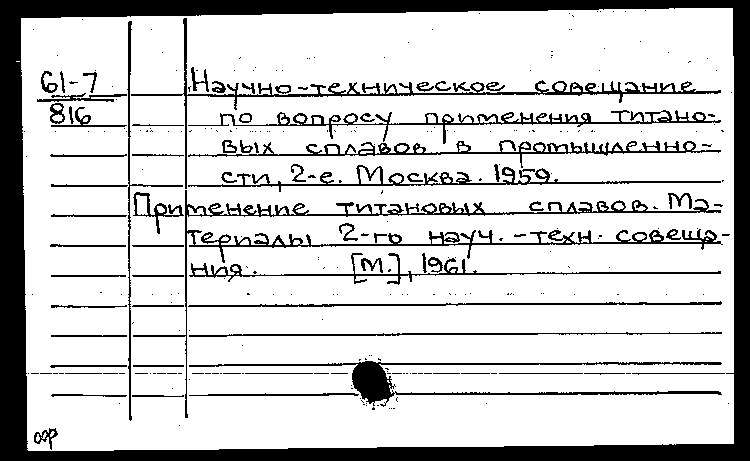 61-7
816
Научно-техническое совещание
по вопросу применения титано-
вых сплавов в промышленно-
сти, 2-е. Москва. 1959.
Применение титановых сплавов. Ма-
териалы 2-го науч.-техн. совеща-
ния. [М.], 1961.